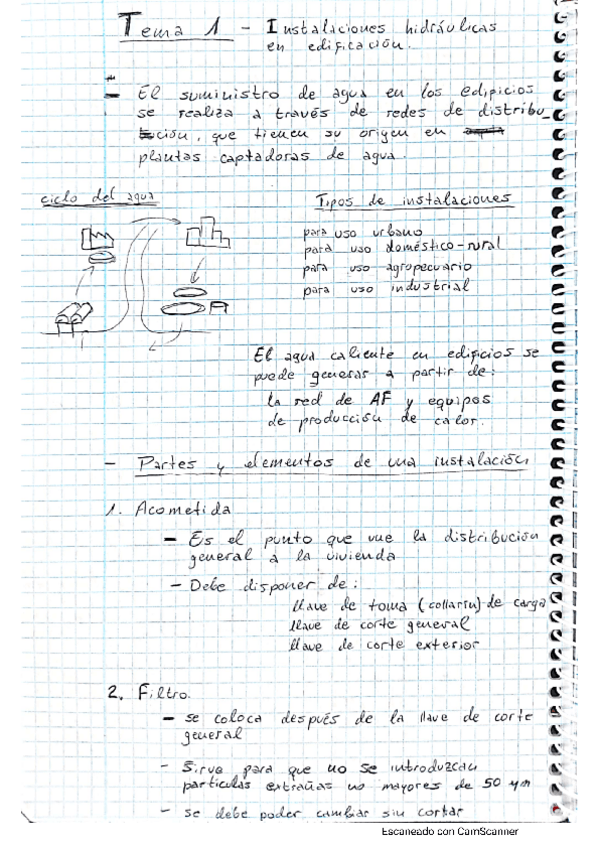 Tema 1 - Instalaciones hidráulicas
en edificación.
- El suministro de agua en los edificios
se realiza a través de redes de distribu_
ción, que tienen su origen en
plantas captadoras de agua.
ciclo del agua
Tipos de instalaciones
para uso urbano
para uso doméstico-rural
para uso agropecuario
para uso industrial
El agua caliente en edificios se
puede generar a partir de:
la red de AF y equipos
de producción de calor.
- Partes y elementos de una instalación
1. Acometida
- Es el punto que une la distribución
general a la vivienda
- Debe disponer de:
llave de toma (collarín) de carga
llave de corte general
llave de corte exterior
2. Filtro.
- se coloca después de la llave de corte
general
- Sirve para que no se introduzcan
partículas extrañas no mayores de 50 μm
- se debe poder cambiar sin cortar
Escaneado con CamScanner